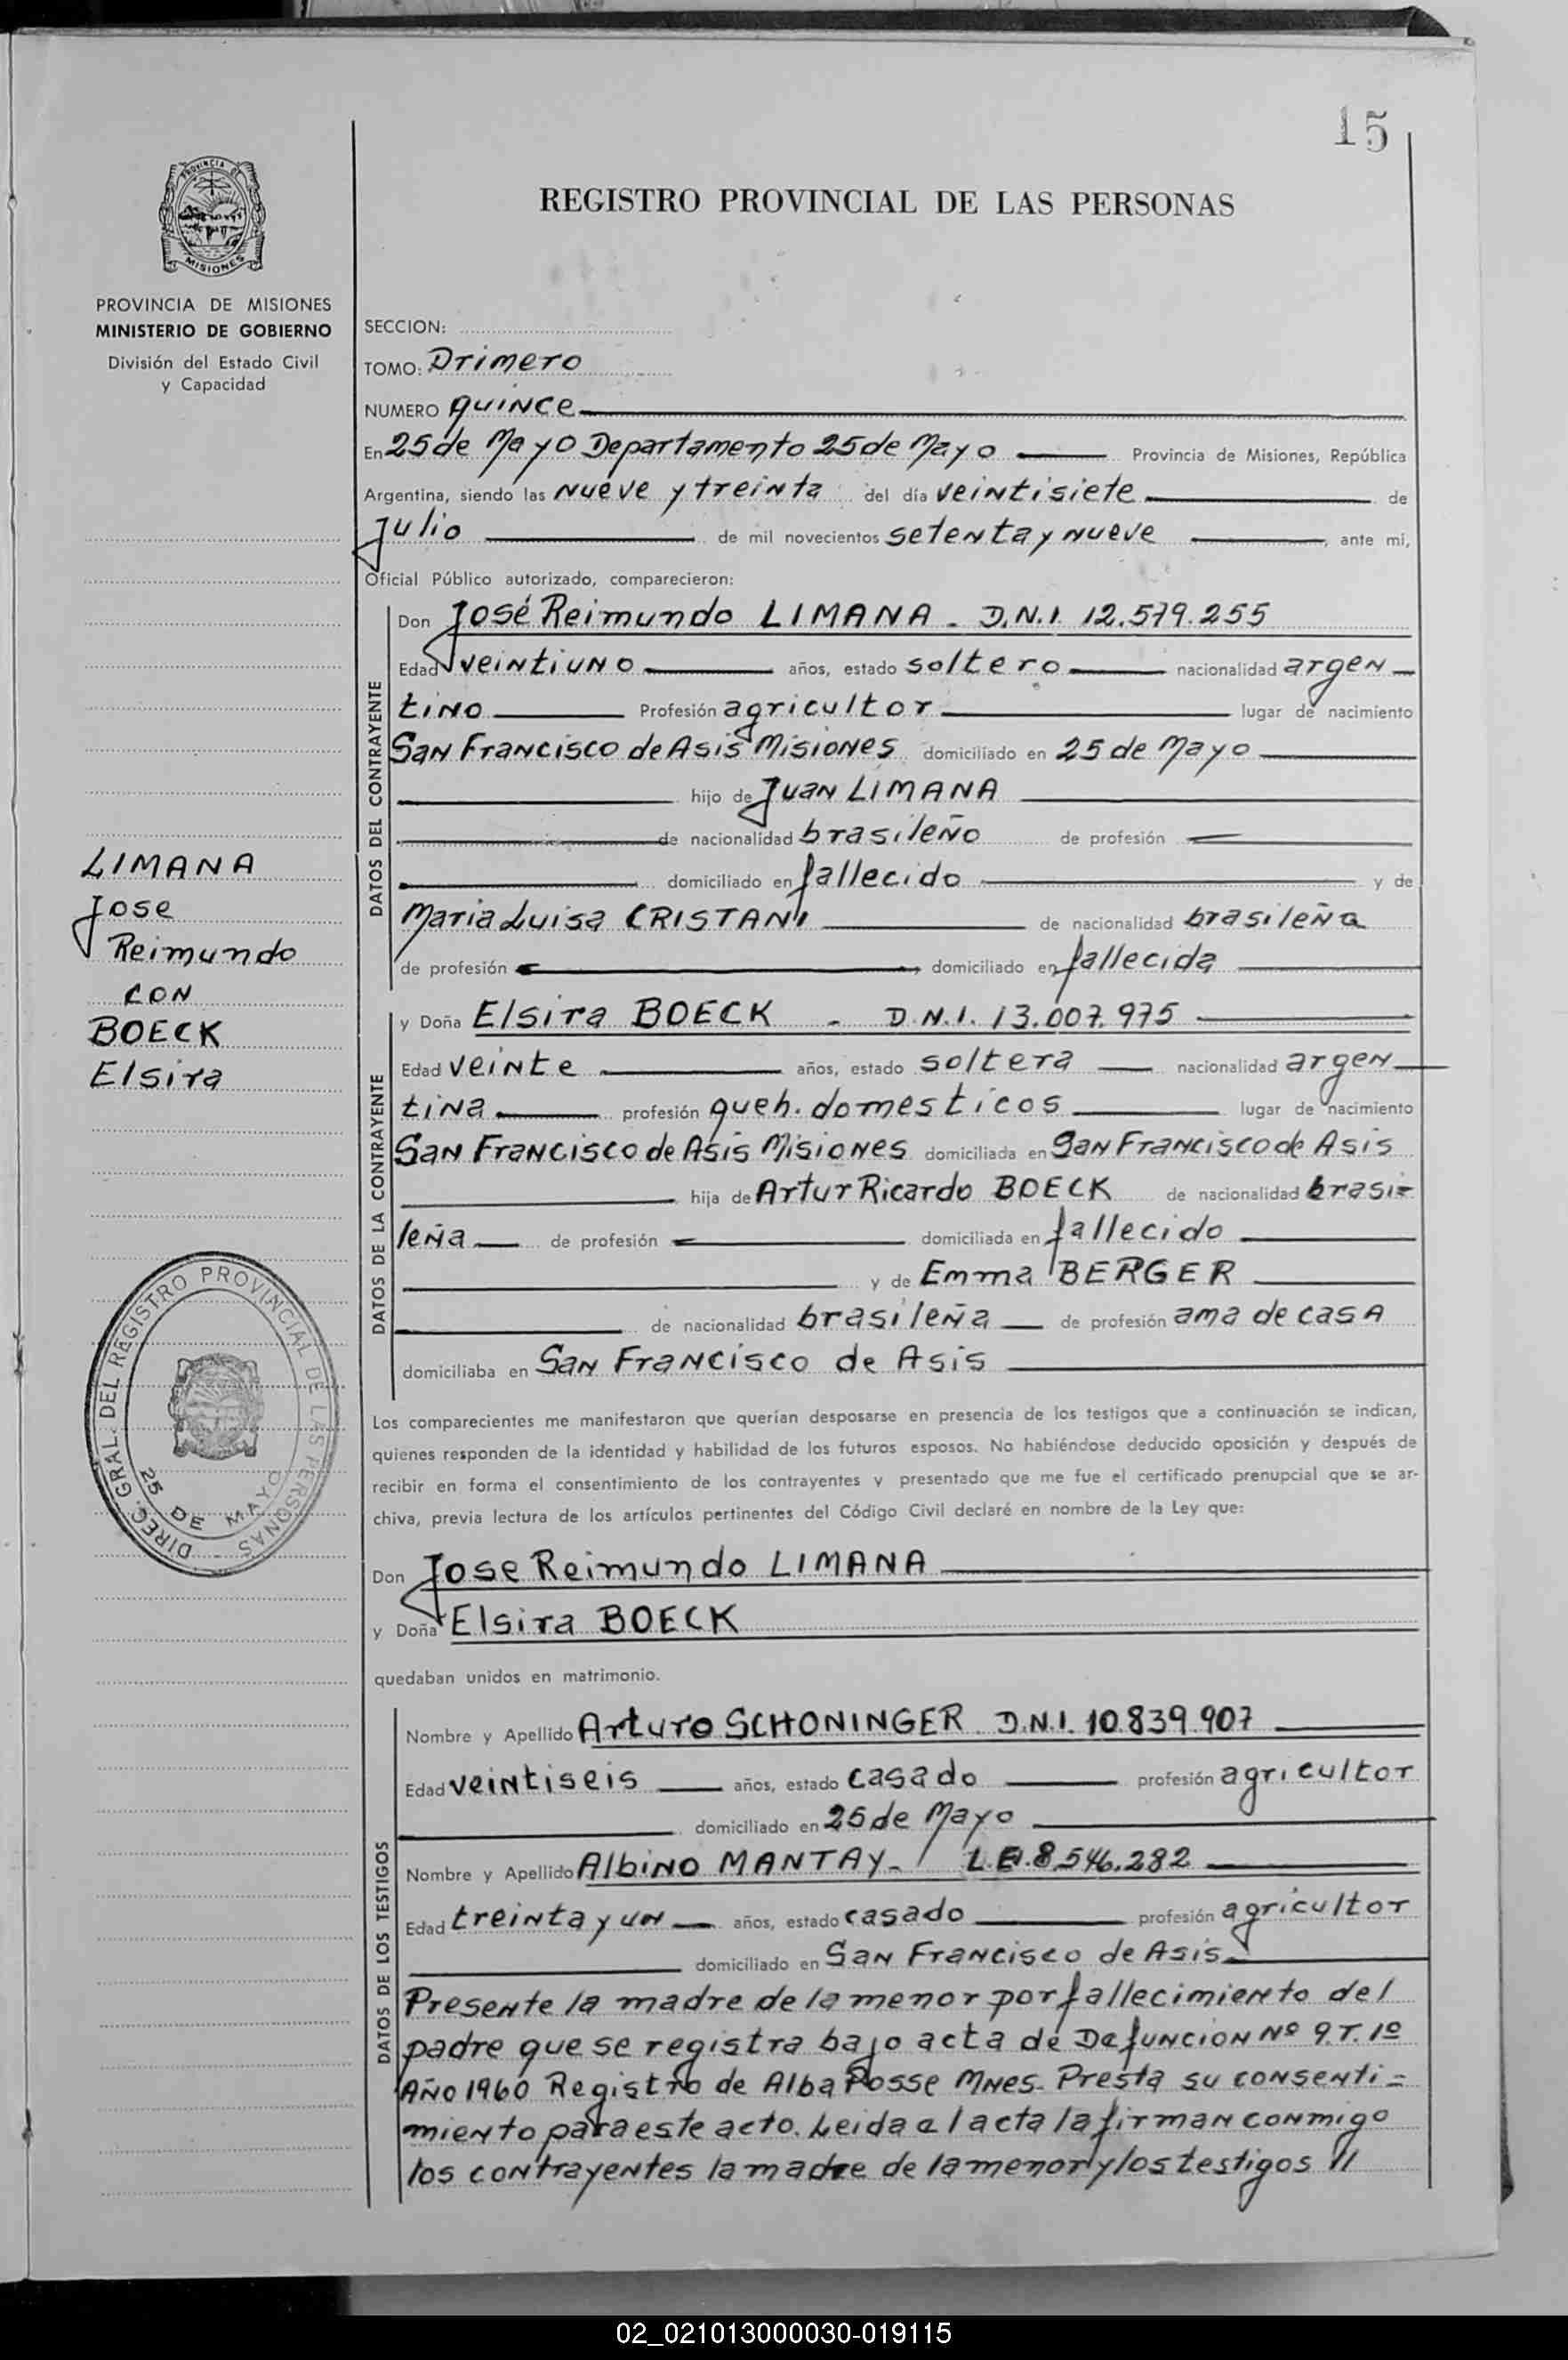 15
PROVINCIA DE
MISIONES
PROVINCIA DE MISIONES
MINISTERIO DE GOBIERNO
División del Estado Civil
y Capacidad
LIMANA
Jose
Reimundo
CON
BOECK
Elsira
DIREC. GRAL. DEL REGISTRO PROVINCIAL DE LAS PERSONAS -
25 DE MAYO
REGISTRO PROVINCIAL DE LAS PERSONAS
SECCION:
TOMO: Primero
NUMERO quince
En 25 de Mayo Departamento 25 de Mayo Provincia de Misiones, República
Argentina, siendo las nueve y treinta del día veintisiete de
Julio de mil novecientos setenta y nueve, ante mi,
Oficial Público autorizado, comparecieron:
DATOS DEL CONTRAYENTE
Don José Reimundo LIMANA - D.N.I. 12.579.255
Edad veintiuno años, estado soltero nacionalidad argen
tino Profesión agricultor lugar de nacimiento
San Francisco de Asis Misiones domiciliado en 25 de Mayo
hijo de Juan LIMANA
de nacionalidad brasileño de profesión
domiciliado en fallecido y de
Maria Luisa CRISTANI de nacionalidad brasileña
de profesión , domiciliado en fallecida
DATOS DE LA CONTRAYENTE
y Doña Elsira BOECK - D.N.I. 13.007.975
Edad veinte años, estado soltera nacionalidad argen
tina profesión queh. domesticos lugar de nacimiento
San Francisco de Asis Misiones domiciliada en San Francisco de Asis
hija de Artur Ricardo BOECK de nacionalidad brasi=
leña de profesión domiciliada en fallecido
y de Emma BERGER
de nacionalidad brasileña de profesión ama de casa
domiciliaba en San Francisco de Asis
Los comparecientes me manifestaron que querían desposarse en presencia de los testigos que a continuación se indican,
quienes responden de la identidad y habilidad de los futuros esposos. No habiéndose deducido oposición y después de
recibir en forma el consentimiento de los contrayentes y presentado que me fue el certificado prenupcial que se ar-
chiva, previa lectura de los artículos pertinentes del Código Civil declaré en nombre de la Ley que:
Don Jose Reimundo LIMANA
y Doña Elsira BOECK
quedaban unidos en matrimonio.
DATOS DE LOS TESTIGOS
Nombre y Apellido Arturo SCHONINGER D.N.I. 10.839.907
Edad veintiseis años, estado casado profesión agricultor
domiciliado en 25 de Mayo
Nombre y Apellido Albino MANTAY- L.E. 8.546.282
Edad treinta y un años, estado casado profesión agricultor
domiciliado en San Francisco de Asis
Presente la madre de la menor por fallecimiento del
padre que se registra bajo acta de Defuncion Nº 9.T.1º
Año 1960 Registro de Alba Posse Mnes. Presta su consenti=
miento para este acto. Leida el acta la firman conmigo
los contrayentes la madre de la menor y los testigos //
02_021013000030-019115